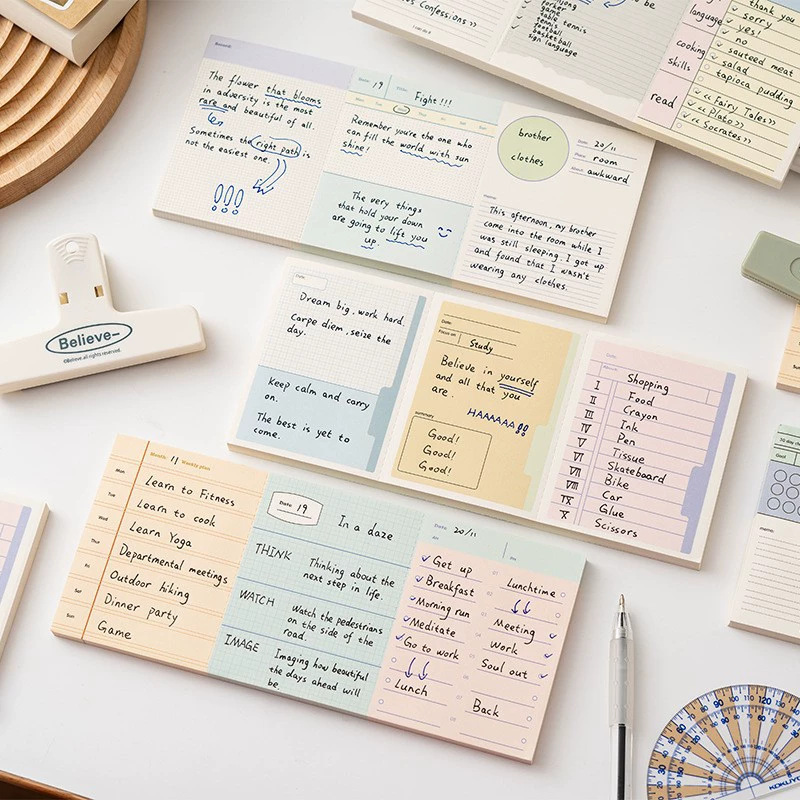 Confessions>>
table tennis
football
basketball
sign language
language
cooking
skills
read
thank you
✓ sorry
✓ yes!
✓ no
✓ sauteed meat
✓ salad
tapioca pudding
✓ <<Fairy Tales>>
✓ <<Plato>>
✓ <<Socrates>>
The flower that blooms
in adversity is the most
rare and beautiful of all.
Sometimes the right path is
not the easiest one.
!!!
Date: 19
Fight!!!
Remember you're the one who
can fill the world with sun
shine!
The very things
that hold your down
are going to lift you
up.
brother
clothes
Date: 20/11
Place: room
About: awkward
This afternoon, my brother
came into the room while I
was still sleeping. I got up
and found that I wasn't
wearing any clothes.
Believe–
©Believe all rights reserved.
Date:
Dream big, work hard.
Carpe diem, seize the
day.
keep calm and carry
on.
The best is yet to
come.
Date:
Focus on: Study
Believe in yourself
and all that you
are.
HAAAAA!!
summary
Good!
Good!
Good!
Date:
I Shopping
II Food
III Crayon
IIII Ink
V Pen
VI Tissue
VII Skateboard
VIII Bike
IX Car
X Glue
Scissors
Month 11 Weekly plan
Mon Learn to Fitness
Tue Learn to cook
Wed Learn Yoga
Thu Departmental meetings
Fri Outdoor hiking
Sat Dinner party
Sun Game
Date: 19
In a daze
THINK Thinking about the
next step in life.
WATCH Watch the pedestrians
on the side of the
road.
IMAGE Imaging how beautiful
the days ahead will
be.
Date: 20/11
AM
PM
✓ Get up
✓ Breakfast
✓ Morning run
✓ Meditate
✓ Go to work
Lunch
Lunchtime
Meeting ✓
Work ✓
Soul out ✓
Back
Goal
memo:
KOKUYO